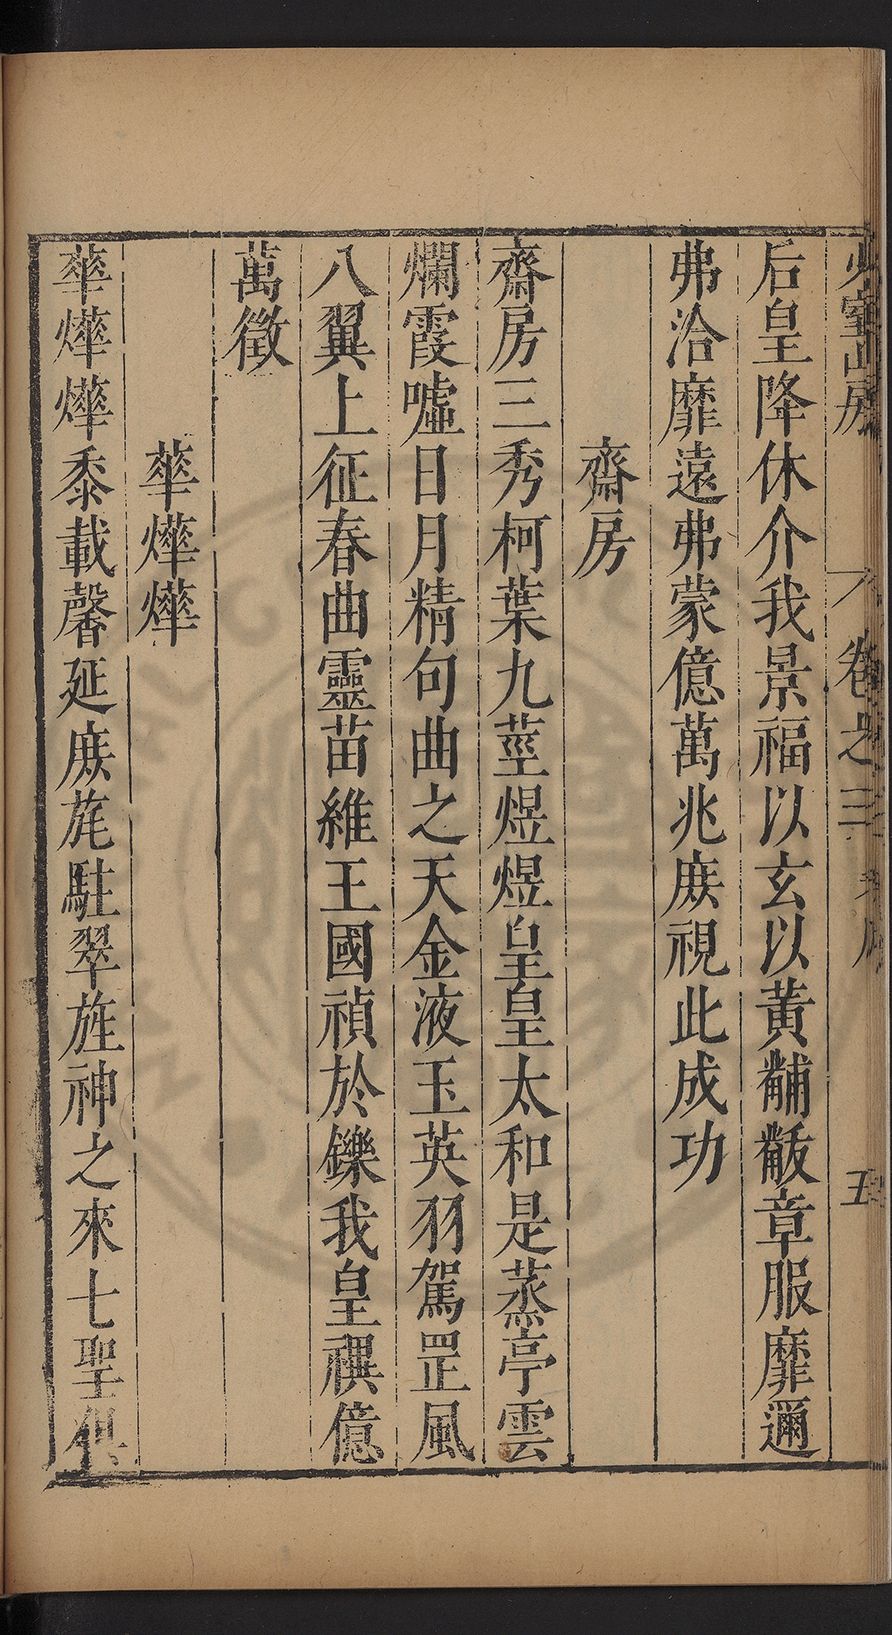 少室山房 卷之三 五
后皇降休介我景福以玄以黃黼黻章服靡邇
弗洽靡遠弗蒙億萬兆庶視此成功
齋房
齋房三秀柯葉九莖煜煜皇皇太和是蒸亭雲
爛霞噓日月精句曲之天金液玉英羽駕罡風
八翼上征春曲靈苗維王國禎於鑠我皇禩億
萬徵
華爗爗
華爗爗黍載馨延庶旄駐翠旌神之來七聖俱